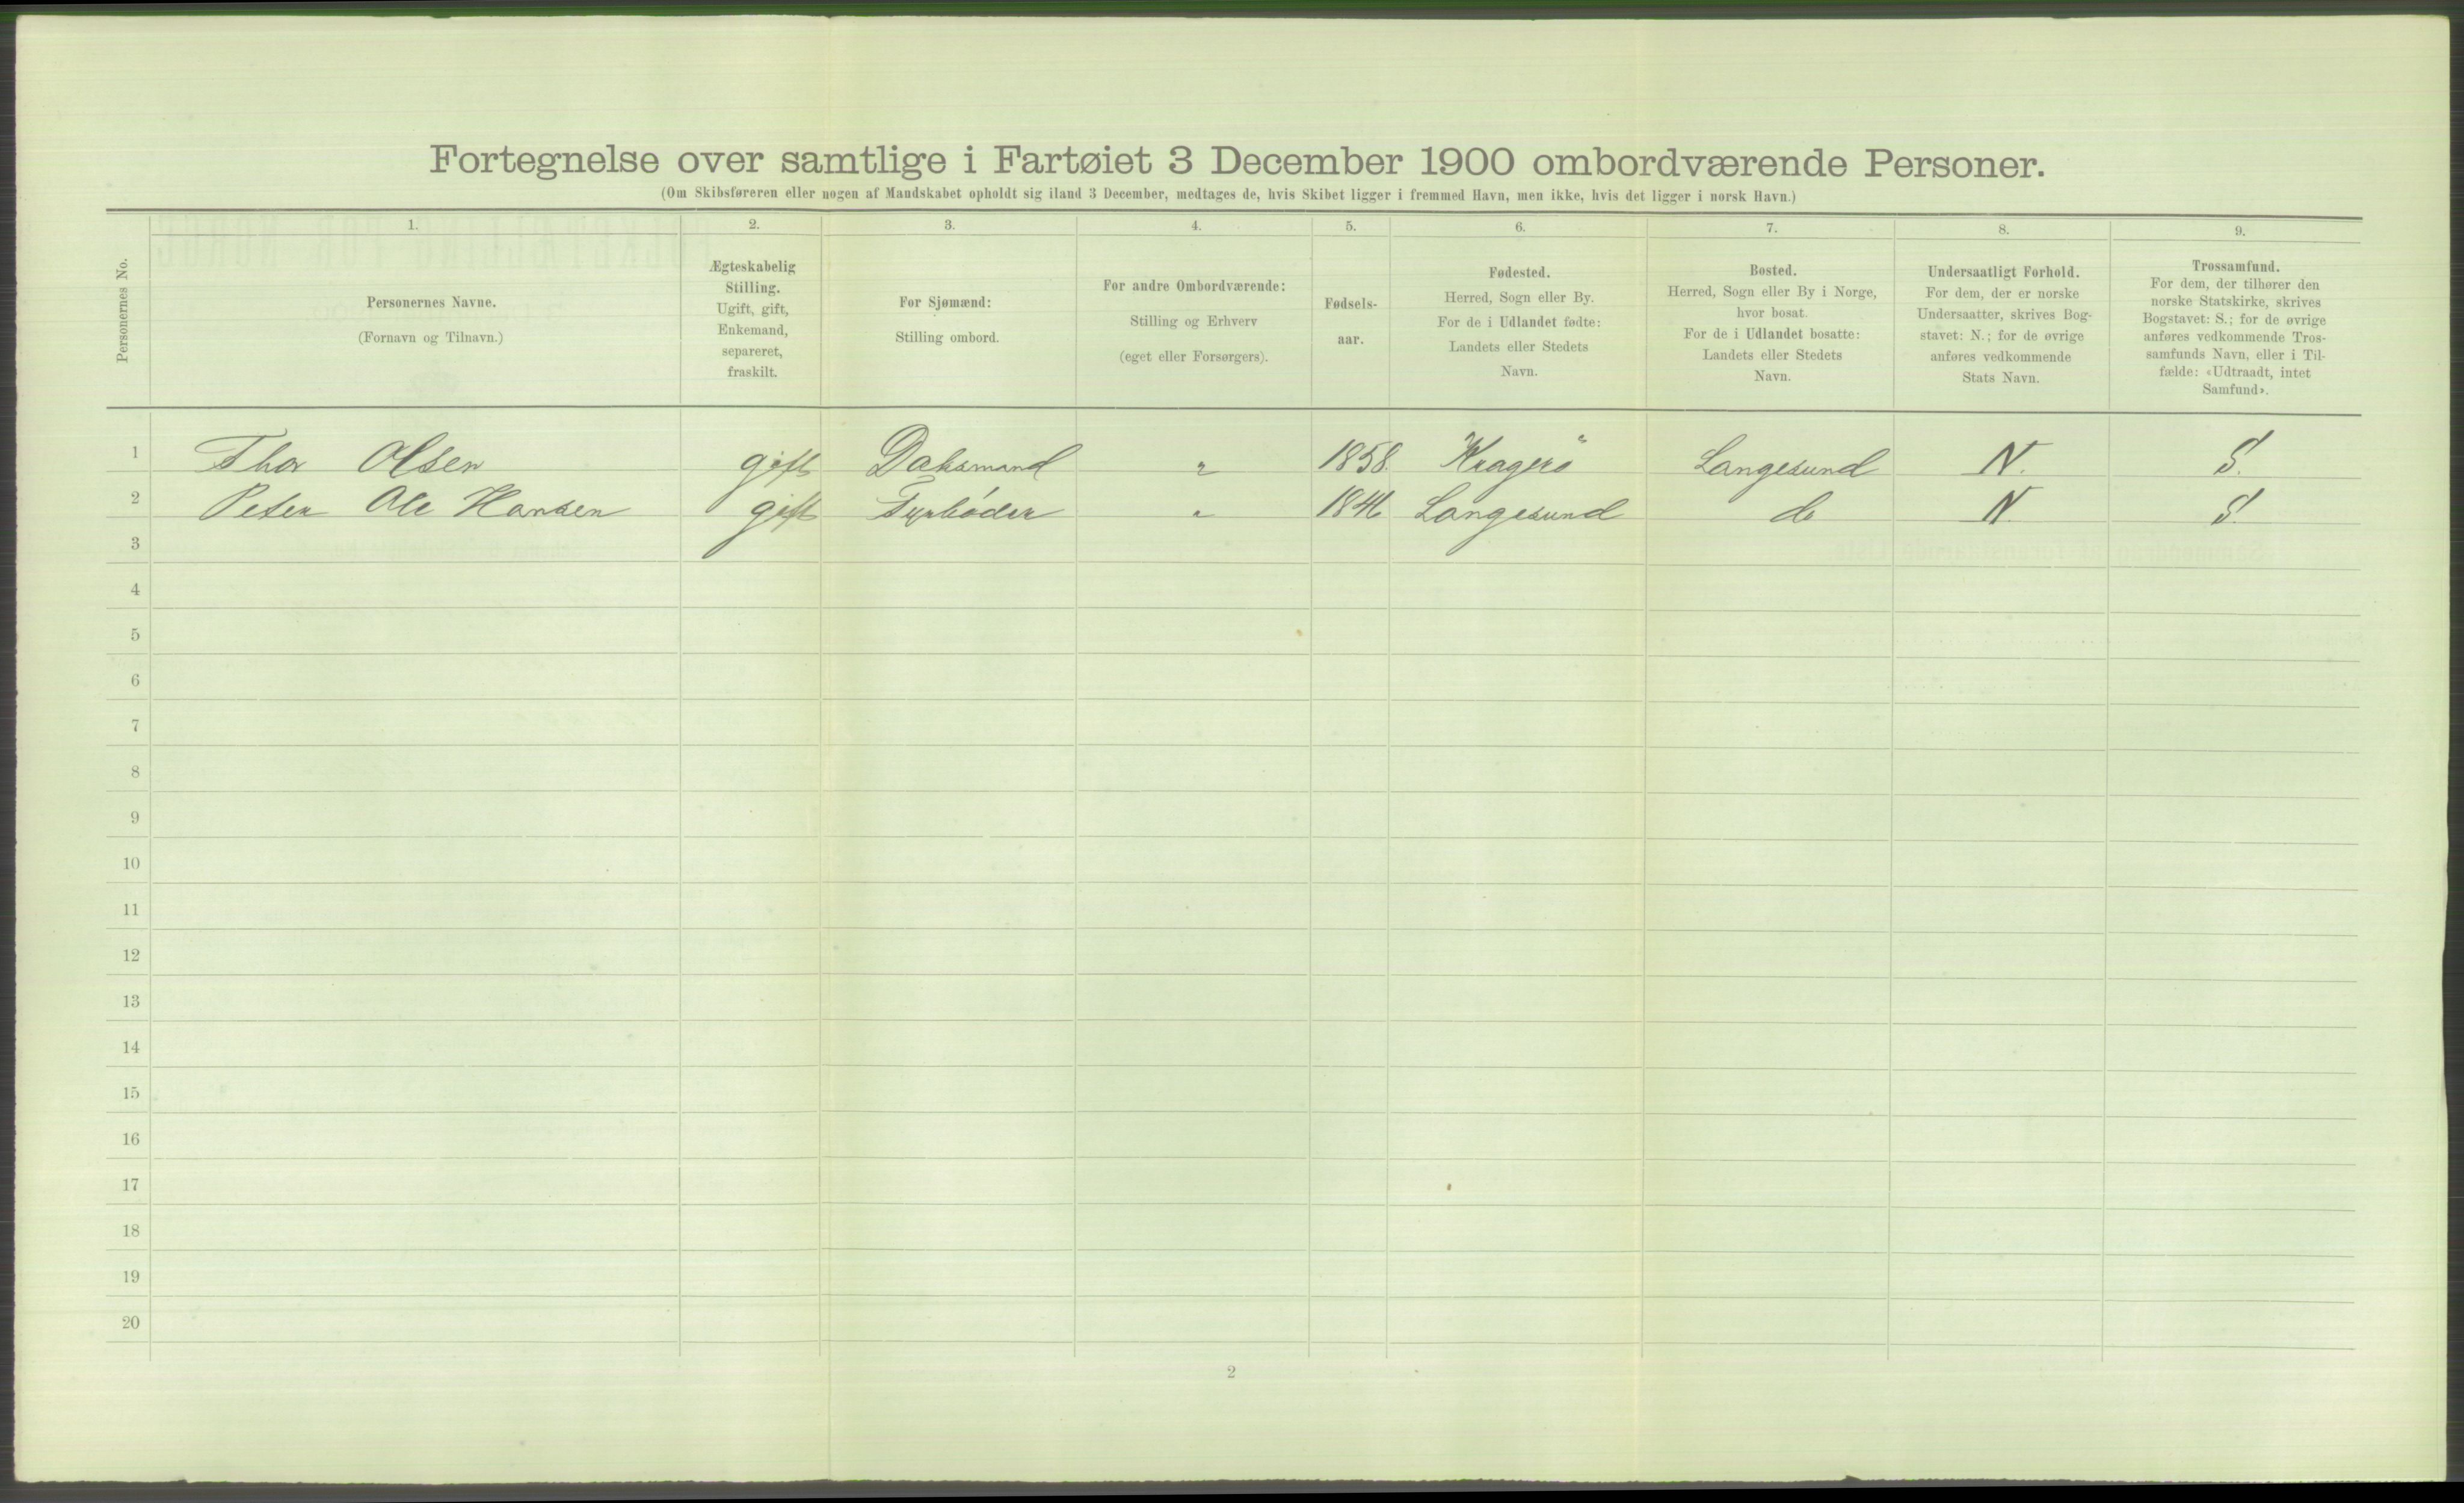 Fortegnelse over samtlige i Fartøiet 3 December 1900 ombordværende Personer.
(Om Skibsføreren eller nogen af Mandskabet opholdt sig iland 3 December, medtages de, hvis Skibet ligger i fremmed Havn, men ikke, hvis det ligger i norsk Havn.)
Personernes No.
1.
Personernes Navne.
(Fornavn og Tilnavn.)
2.
Ægteskabelig
Stilling.
Ugift, gift,
Enkemand,
separeret,
fraskilt.
3.
For Sjømænd:
Stilling ombord.
4.
For andre Ombordværende:
Stilling og Erhverv
(eget eller Forsørgers).
5.
Fødsels-
aar.
6.
Fødested.
Herred, Sogn eller By.
For de i Udlandet fødte:
Landets eller Stedets
Navn.
7.
Bosted.
Herred, Sogn eller By i Norge,
hvor bosat.
For de i Udlandet bosatte:
Landets eller Stedets
Navn.
8.
Undersaatligt Forhold.
For dem, der er norske
Undersaatter, skrives Bog-
stavet: N.; for de øvrige
anføres vedkommende
Stats Navn.
9.
Trossamfund.
For dem, der tilhører den
norske Statskirke, skrives
Bogstavet: S.; for de øvrige
anføres vedkommende Tros-
samfunds Navn, eller i Til-
fælde: «Udtraadt, intet
Samfund».
1 Thor Olsen gift Daksmand " 1858. Kragerö Langesund N. S.
2 Peter Ole Hansen gift Fyrbøder " 1846 Langesund do N. S.
3
4
5
6
7
8
9
10
11
12
13
14
15
16
17
18
19
20
2